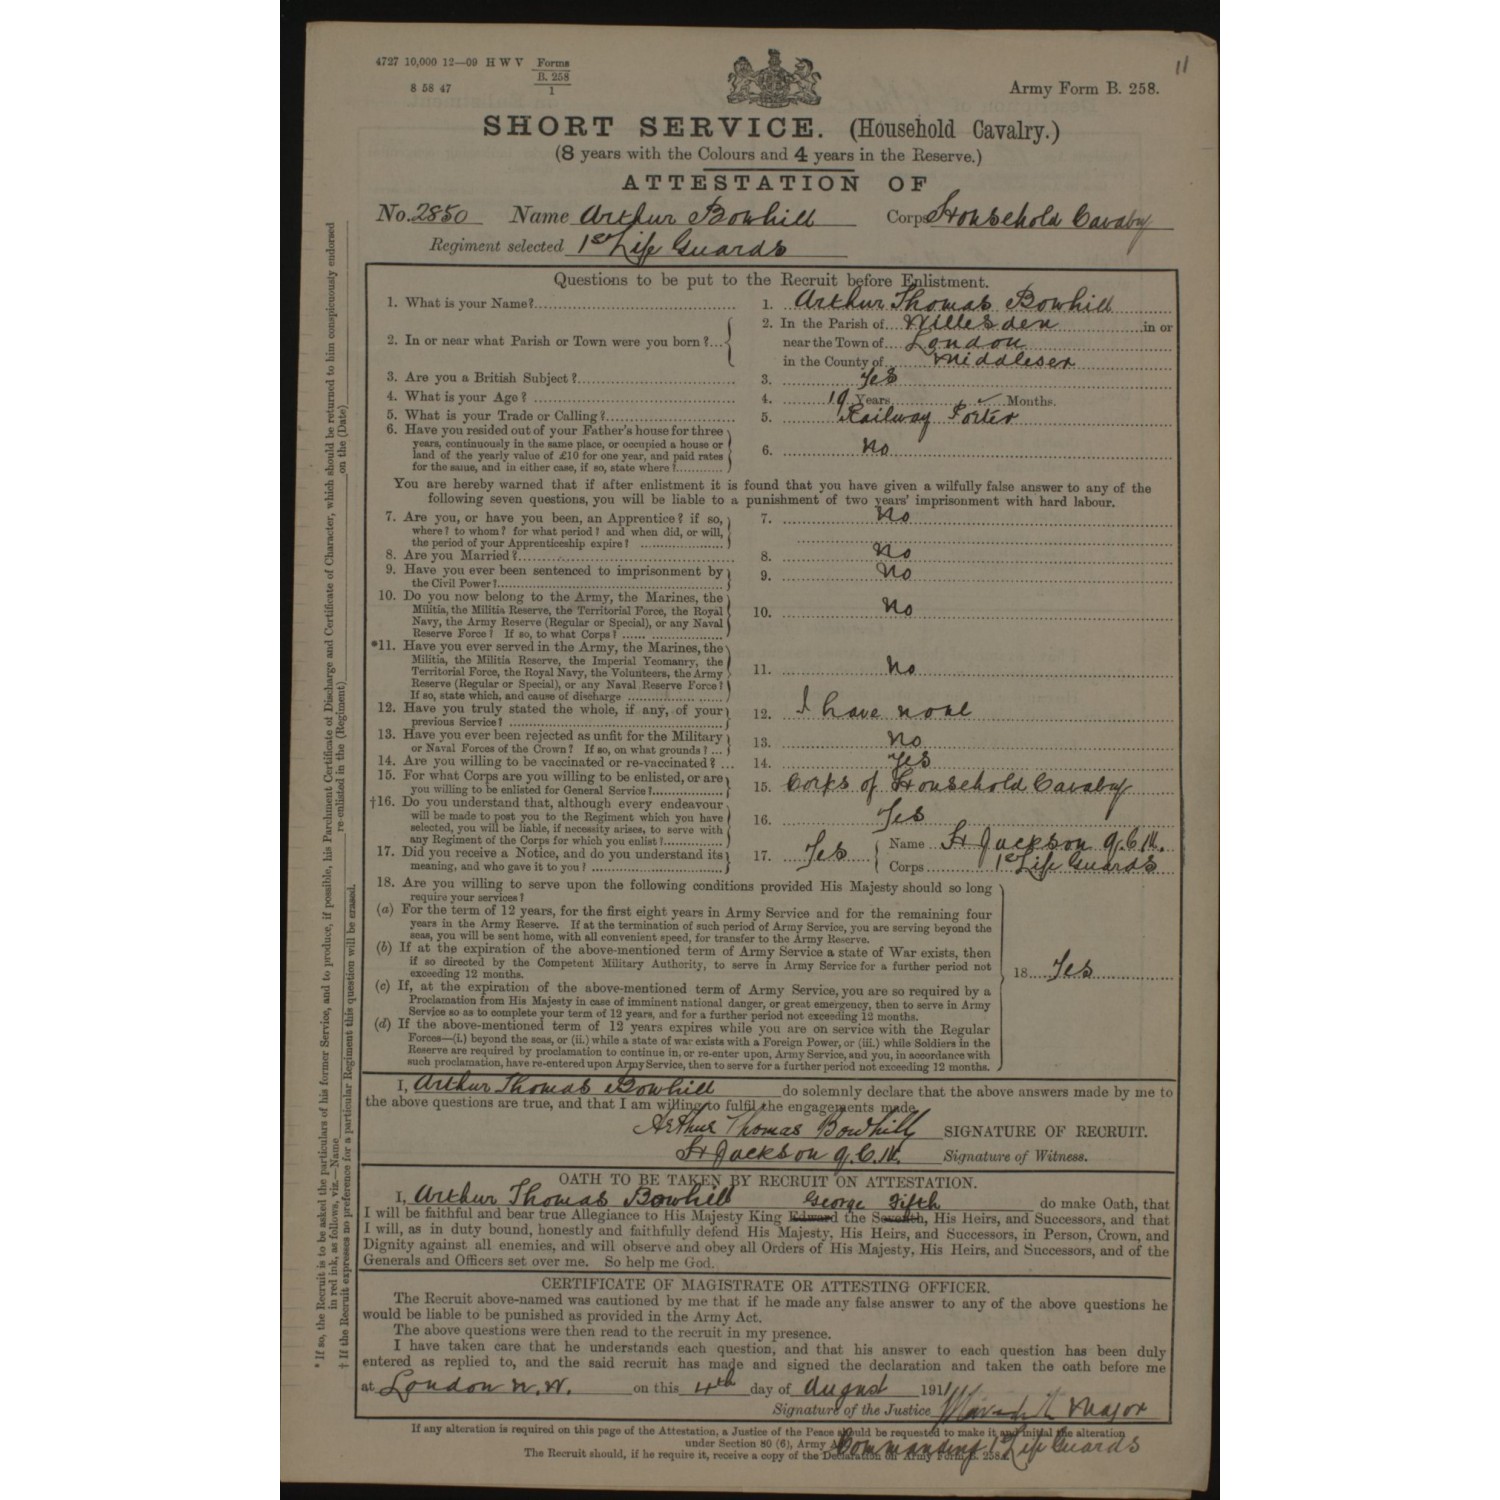 11
4727 10,000 12—09 H W V Forms B. 258 1
8 58 47
Army Form B. 258.
SHORT SERVICE. (Household Cavalry.)
(8 years with the Colours and 4 years in the Reserve.)
ATTESTATION OF
No. 2850 Name Arthur Bowhill Corps Household Cavalry
Regiment selected 1st Life Guards
Questions to be put to the Recruit before Enlistment.
1. What is your Name? 1. Arthur Thomas Bowhill
2. In or near what Parish or Town were you born? 2. In the Parish of Willesden in or
near the Town of London
in the County of Middlesex
3. Are you a British Subject? 3. Yes
4. What is your Age? 4. 19 Years ✓ Months.
5. What is your Trade or Calling? 5. Railway Porter
6. Have you resided out of your Father's house for three
years, continuously in the same place, or occupied a house or
land of the yearly value of £10 for one year, and paid rates
for the same, and in either case, if so, state where? 6. No
You are hereby warned that if after enlistment it is found that you have given a wilfully false answer to any of the
following seven questions, you will be liable to a punishment of two years' imprisonment with hard labour.
7. Are you, or have you been, an Apprentice? if so, 7. No
where? to whom? for what period? and when did, or will,
the period of your Apprenticeship expire?
8. Are you Married? 8. No
9. Have you ever been sentenced to imprisonment by
the Civil Power? 9. No
10. Do you now belong to the Army, the Marines, the
Militia, the Militia Reserve, the Territorial Force, the Royal
Navy, the Army Reserve (Regular or Special), or any Naval
Reserve Force? If so, to what Corps? 10. No
*11. Have you ever served in the Army, the Marines, the
Militia, the Militia Reserve, the Imperial Yeomanry, the
Territorial Force, the Royal Navy, the Volunteers, the Army
Reserve (Regular or Special), or any Naval Reserve Force?
If so, state which, and cause of discharge 11. No
12. Have you truly stated the whole, if any, of your
previous Service? 12. I have none
13. Have you ever been rejected as unfit for the Military
or Naval Forces of the Crown? If so, on what grounds? 13. No
14. Are you willing to be vaccinated or re-vaccinated? 14. Yes
15. For what Corps are you willing to be enlisted, or are
you willing to be enlisted for General Service? 15. Corps of Household Cavalry
†16. Do you understand that, although every endeavour
will be made to post you to the Regiment which you have
selected, you will be liable, if necessity arises, to serve with
any Regiment of the Corps for which you enlist? 16. Yes
17. Did you receive a Notice, and do you understand its
meaning, and who gave it to you? 17. Yes Name H Jackson q.C.M.
Corps 1st Life Guards
18. Are you willing to serve upon the following conditions provided His Majesty should so long
require your services?
(a) For the term of 12 years, for the first eight years in Army Service and for the remaining four
years in the Army Reserve. If at the termination of such period of Army Service, you are serving beyond the
seas, you will be sent home, with all convenient speed, for transfer to the Army Reserve.
(b) If at the expiration of the above-mentioned term of Army Service a state of War exists, then
if so directed by the Competent Military Authority, to serve in Army Service for a further period not
exceeding 12 months.
18 Yes
(c) If, at the expiration of the above-mentioned term of Army Service, you are so required by a
Proclamation from His Majesty in case of imminent national danger, or great emergency, then to serve in Army
Service so as to complete your term of 12 years, and for a further period not exceeding 12 months.
(d) If the above-mentioned term of 12 years expires while you are on service with the Regular
Forces—(i.) beyond the seas, or (ii.) while a state of war exists with a Foreign Power, or (iii.) while Soldiers in the
Reserve are required by proclamation to continue in, or re-enter upon, Army Service, and you, in accordance with
such proclamation, have re-entered upon Army Service, then to serve for a further period not exceeding 12 months.
I, Arthur Thomas Bowhill do solemnly declare that the above answers made by me to
the above questions are true, and that I am willing to fulfil the engagements made.
Arthur Thomas Bowhill SIGNATURE OF RECRUIT.
H Jackson q.C.M. Signature of Witness.
OATH TO BE TAKEN BY RECRUIT ON ATTESTATION.
I, Arthur Thomas Bowhill George Fifth do make Oath, that
I will be faithful and bear true Allegiance to His Majesty King Edward the Seventh, His Heirs, and Successors, and that
I will, as in duty bound, honestly and faithfully defend His Majesty, His Heirs, and Successors, in Person, Crown, and
Dignity against all enemies, and will observe and obey all Orders of His Majesty, His Heirs, and Successors, and of the
Generals and Officers set over me. So help me God.
CERTIFICATE OF MAGISTRATE OR ATTESTING OFFICER.
The Recruit above-named was cautioned by me that if he made any false answer to any of the above questions he
would be liable to be punished as provided in the Army Act.
The above questions were then read to the recruit in my presence.
I have taken care that he understands each question, and that his answer to each question has been duly
entered as replied to, and the said recruit has made and signed the declaration and taken the oath before me
at London N.W. on this 4th day of August 1911
Signature of the Justice Major
Commanding 1st Life Guards
If any alteration is required on this page of the Attestation, a Justice of the Peace should be requested to make it and initial the alteration
under Section 80 (6), Army
The Recruit should, if he require it, receive a copy of the Declaration on Army Form B. 258A.
* If so, the Recruit is to be asked the particulars of his former Service, and to produce, if possible, his Parchment Certificate of Discharge and Certificate of Character, which should be returned to him conspicuously endorsed
in red ink, as follows, viz.—Name re-enlisted in the (Regiment) on the (Date)
† If the Recruit expresses no preference for a particular Regiment this question will be erased.